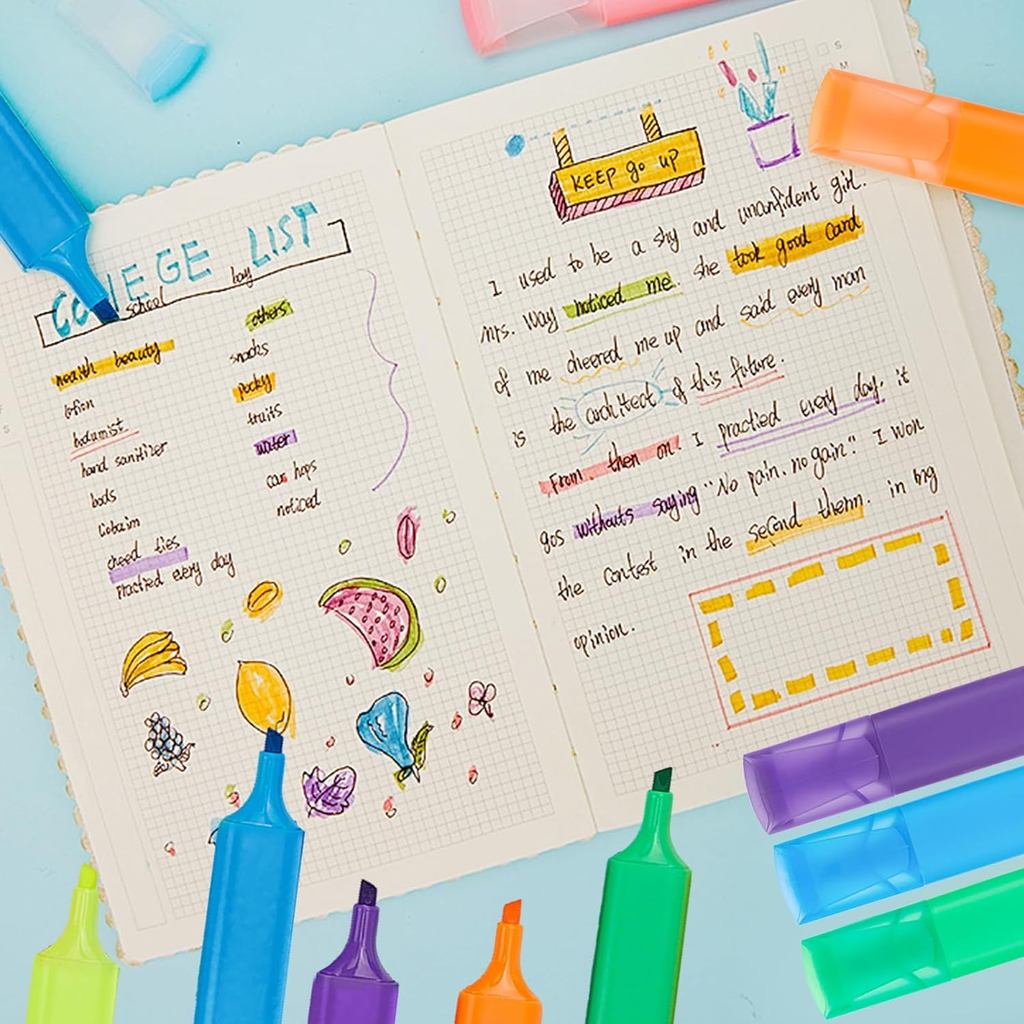 COLLEGE LIST
school boy
health beauty
lotion
bodumist
hand sanitizer
bods
cheed ties
Practied every day
others
snacks
pocky
fruits
water
car hops
noticed
KEEP go up
S
M
I used to be a shy and unconfident girl.
mrs. Way noticed me. she took good card
of me cheered me up and said every man
is the architect of this future.
From then on. I practied every day. it
gos withouts saying "No pain. no gain." I won
the contest in the second themn. in my
opinion.